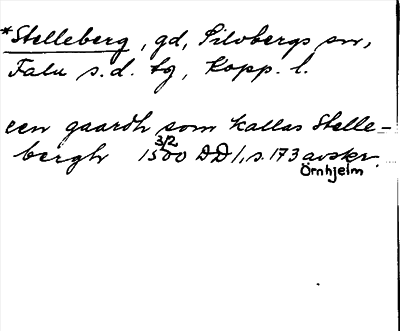 *Stelleberg, gd, Silvbergs sn,
Falu s.d. tg, Kopp. l.
een gaardh som kallas Stelle-
bergh 3/2 1500 DD1, s. 173 avskr.
Örnhjelm